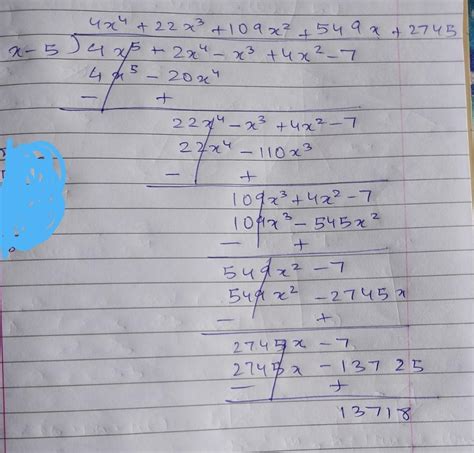 4x⁴ + 22x³ + 109x² + 549x + 2745
x-5 ) 4x⁵ + 2x⁴ - x³ + 4x² - 7
4x⁵ - 20x⁴
- +
22x⁴ - x³ + 4x² - 7
22x⁴ - 110x³
- +
109x³ + 4x² - 7
109x³ - 545x²
- +
549x² - 7
549x² - 2745x
- +
2745x - 7
2745x - 13725
- +
13718